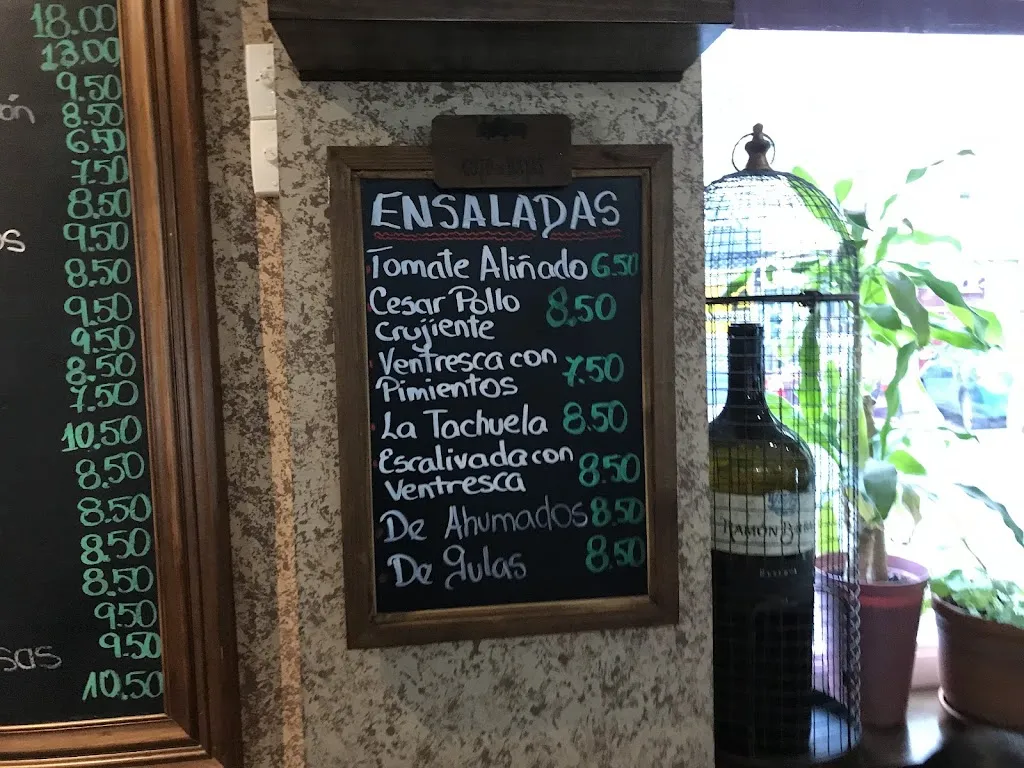 18.00
13.00
9.50
ón 8.50
6.50
7.50
8.50
os 9.50
8.50
9.50
9.50
8.50
7.50
10.50
8.50
8.50
8.50
8.50
9.50
sas 9.50
10.50
ENSALADAS
Tomate Aliñado 6.50
Cesar Pollo 8.50
Crujiente
Ventresca con 7.50
Pimientos
La Tachuela 8.50
Escalivada con 8.50
Ventresca
De Ahumados 8.50
De gulas 8.50
RAMÓN
RESERVA